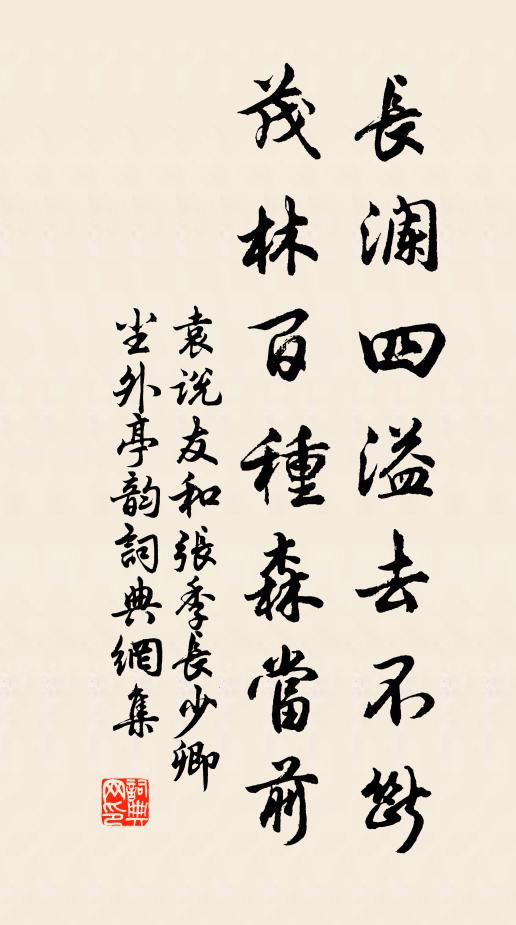 長瀾四溢去不斷
茂林百種森當前
袁說友和張季長少卿
尘外亭韵詞典網集
詞典网印